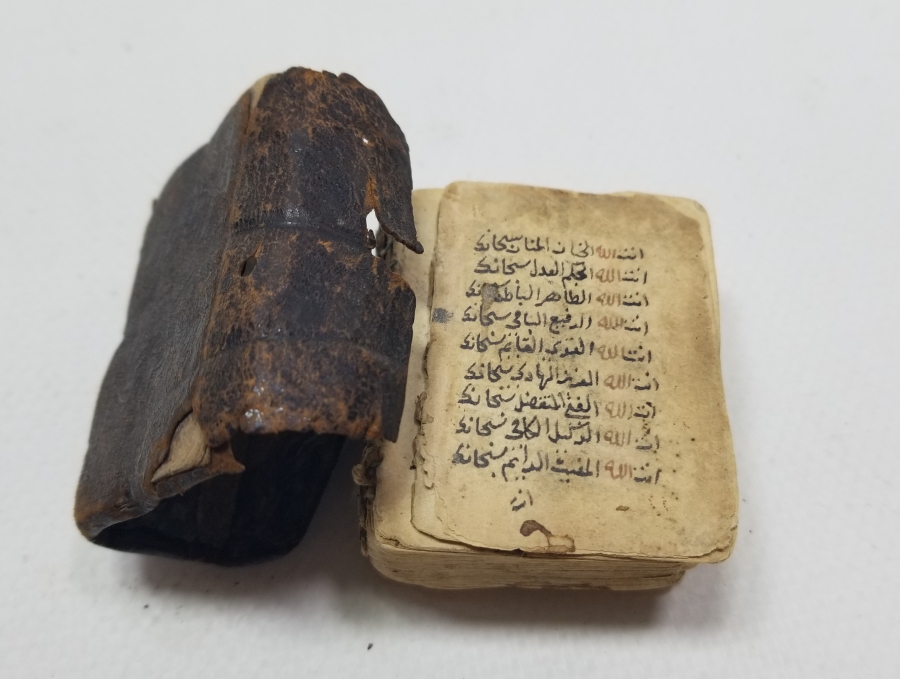 انت الله الحنان المنان سبحانك
انت الله الحكم العدل سبحانك
انت الله الظاهر الباطن سبحانك
انت الله الرفيع الباقي سبحانك
انت الله القوي القائم سبحانك
انت الله العزيز الهادي سبحانك
انت الله المتفضل سبحانك
انت الله الوكيل الكافي سبحانك
انت الله المغيث الدايم سبحانك
انت